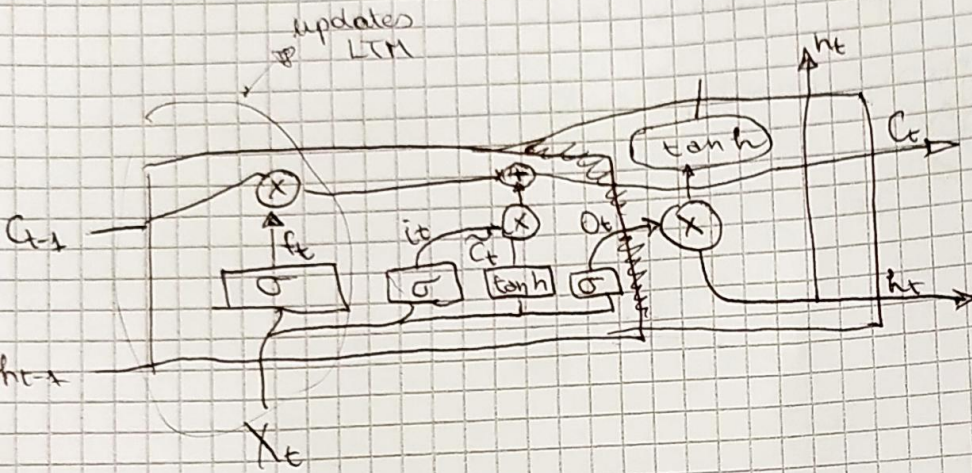 updates
LTM
ht
tanh
Ct
Ct-1
x
x+
ft
it
C̃t
x
Ot
x
σ
σ
tanh
σ
ht
ht-1
Xt